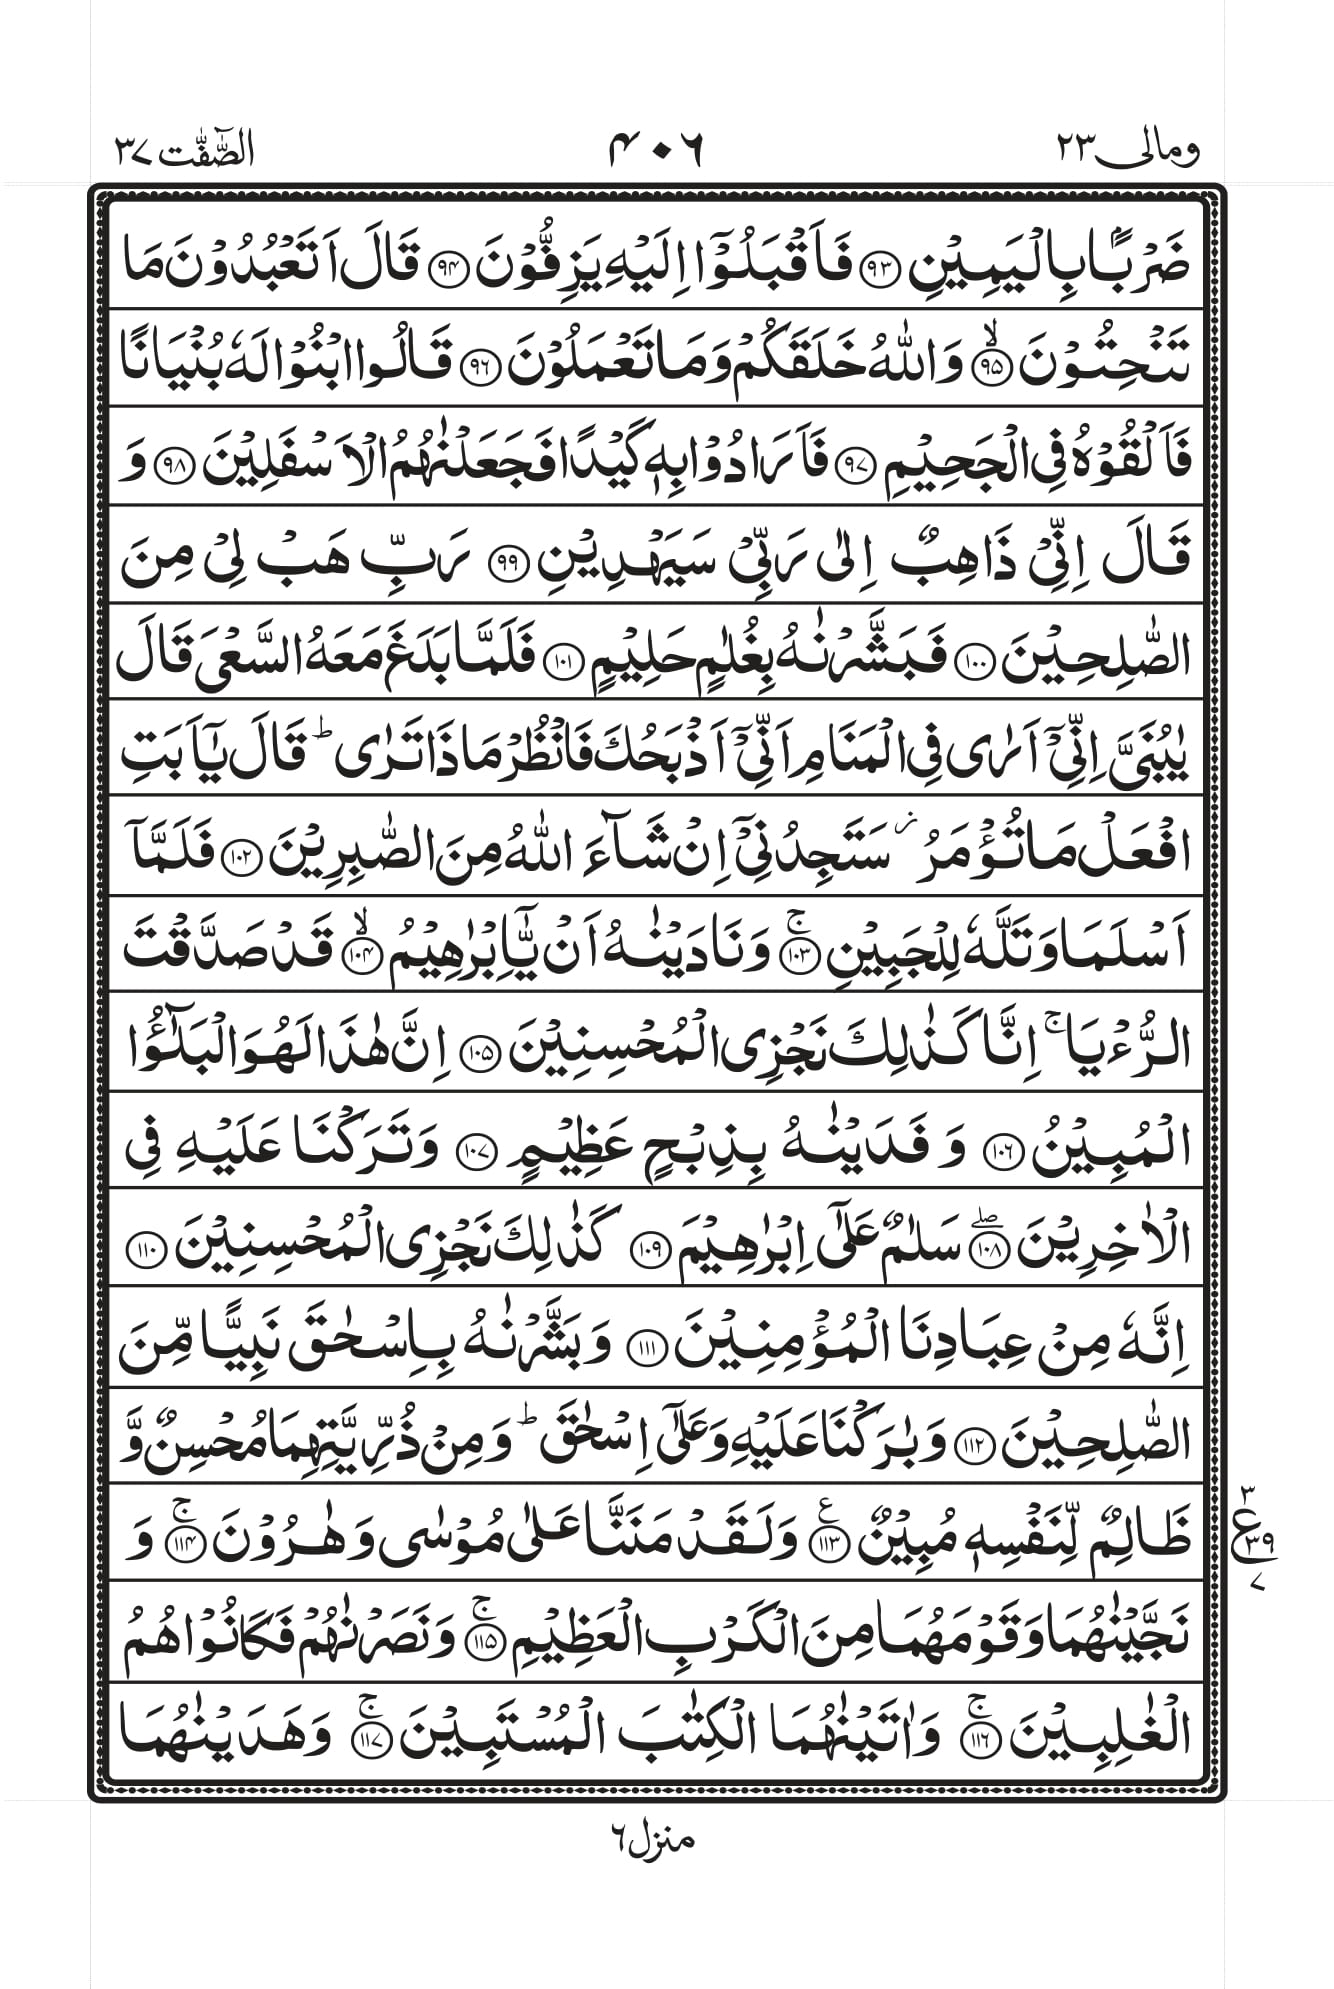 ومالی ۲۳ ۴۰۶ الصّٰٓفّٰت ۳۷
ضَرْبًۢا بِالْيَمِيْنِ ﴿۹۳﴾ فَاَقْبَلُوْۤا اِلَيْهِ يَزِفُّوْنَ ﴿۹۴﴾ قَالَ اَتَعْبُدُوْنَ مَا
تَنْحِتُوْنَ ۙ﴿۹۵﴾ وَاللّٰهُ خَلَقَكُمْ وَمَا تَعْمَلُوْنَ ﴿۹۶﴾ قَالُوا ابْنُوْا لَهٗ بُنْيَانًا
فَاَلْقُوْهُ فِى الْجَحِيْمِ ﴿۹۷﴾ فَاَرَادُوْا بِهٖ كَيْدًا فَجَعَلْنٰهُمُ الْاَسْفَلِيْنَ ﴿۹۸﴾ وَ
قَالَ اِنِّىْ ذَاهِبٌ اِلٰى رَبِّىْ سَيَهْدِيْنِ ﴿۹۹﴾ رَبِّ هَبْ لِىْ مِنَ
الصّٰلِحِيْنَ ﴿۱۰۰﴾ فَبَشَّرْنٰهُ بِغُلٰمٍ حَلِيْمٍ ﴿۱۰۱﴾ فَلَمَّا بَلَغَ مَعَهُ السَّعْىَ قَالَ
يٰبُنَىَّ اِنِّىْۤ اَرٰى فِى الْمَنَامِ اَنِّىْۤ اَذْبَحُكَ فَانْظُرْ مَاذَا تَرٰى ؕ قَالَ يٰۤاَبَتِ
افْعَلْ مَا تُؤْمَرُ ؗ سَتَجِدُنِىْۤ اِنْ شَآءَ اللّٰهُ مِنَ الصّٰبِرِيْنَ ﴿۱۰۲﴾ فَلَمَّاۤ
اَسْلَمَا وَتَلَّهٗ لِلْجَبِيْنِ ۚ﴿۱۰۳﴾ وَنَادَيْنٰهُ اَنْ يّٰۤاِبْرٰهِيْمُ ۙ﴿۱۰۴﴾ قَدْ صَدَّقْتَ
الرُّءْيَا ۚ اِنَّا كَذٰلِكَ نَجْزِى الْمُحْسِنِيْنَ ﴿۱۰۵﴾ اِنَّ هٰذَا لَهُوَ الْبَلٰٓؤُا
الْمُبِيْنُ ﴿۱۰۶﴾ وَ فَدَيْنٰهُ بِذِبْحٍ عَظِيْمٍ ﴿۱۰۷﴾ وَتَرَكْنَا عَلَيْهِ فِى
الْاٰخِرِيْنَ ۖ﴿۱۰۸﴾ سَلٰمٌ عَلٰٓى اِبْرٰهِيْمَ ﴿۱۰۹﴾ كَذٰلِكَ نَجْزِى الْمُحْسِنِيْنَ ﴿۱۱۰﴾
اِنَّهٗ مِنْ عِبَادِنَا الْمُؤْمِنِيْنَ ﴿۱۱۱﴾ وَبَشَّرْنٰهُ بِاِسْحٰقَ نَبِيًّا مِّنَ
الصّٰلِحِيْنَ ﴿۱۱۲﴾ وَبٰرَكْنَا عَلَيْهِ وَعَلٰٓى اِسْحٰقَ ؕ وَمِنْ ذُرِّيَّتِهِمَا مُحْسِنٌ وَّ
ظَالِمٌ لِّنَفْسِهٖ مُبِيْنٌ ۧ﴿۱۱۳﴾ وَلَقَدْ مَنَنَّا عَلٰى مُوْسٰى وَهٰرُوْنَ ۚ﴿۱۱۴﴾ وَ
۳ ع ۳۹ ۷
نَجَّيْنٰهُمَا وَقَوْمَهُمَا مِنَ الْكَرْبِ الْعَظِيْمِ ۚ﴿۱۱۵﴾ وَنَصَرْنٰهُمْ فَكَانُوْا هُمُ
الْغٰلِبِيْنَ ۚ﴿۱۱۶﴾ وَاٰتَيْنٰهُمَا الْكِتٰبَ الْمُسْتَبِيْنَ ۚ﴿۱۱۷﴾ وَهَدَيْنٰهُمَا
منزل ۶